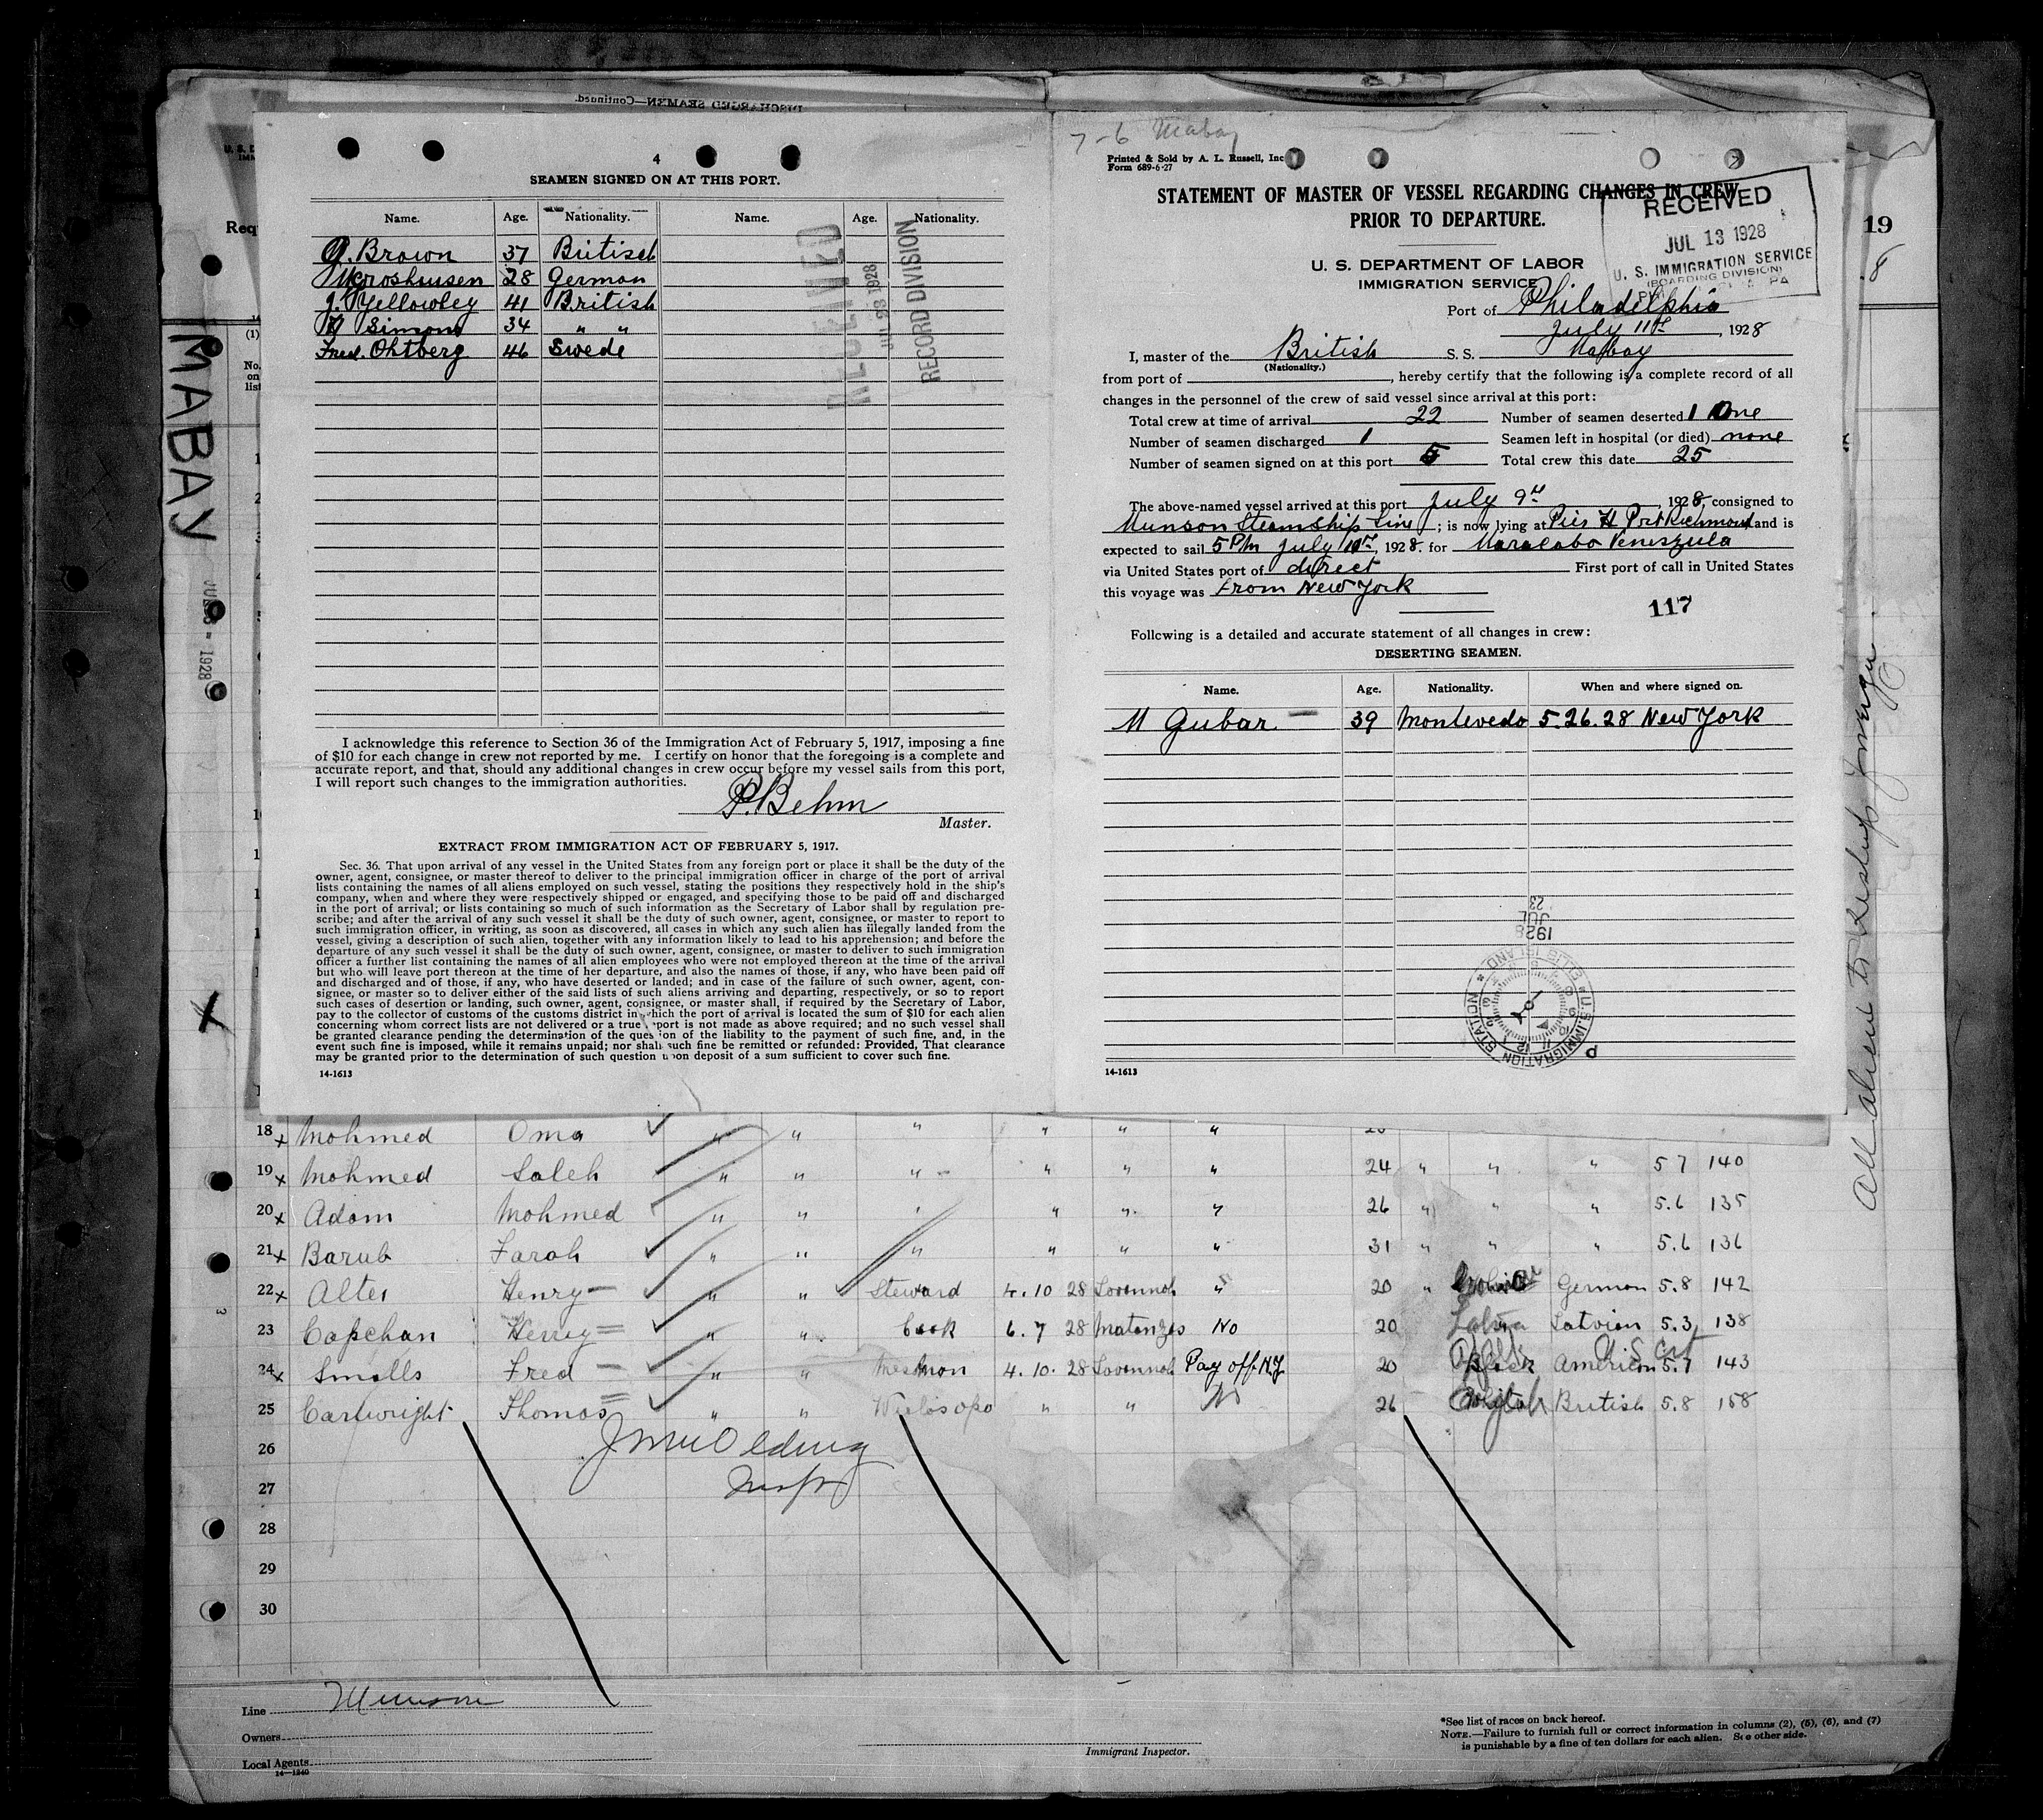 DISCHARGED SEAMEN—Continued.
4
SEAMEN SIGNED ON AT THIS PORT.
Name. Age. Nationality. Name. Age. Nationality.
Brown 37 British
28 German
J. Yellowley 41 British
Simson 34 " "
Fred. Ohtberg 46 Swede
RECEIVED
JUL 23 1928
RECORD DIVISION
I acknowledge this reference to Section 36 of the Immigration Act of February 5, 1917, imposing a fine
of $10 for each change in crew not reported by me. I certify on honor that the foregoing is a complete and
accurate report, and that, should any additional changes in crew occur before my vessel sails from this port,
I will report such changes to the immigration authorities.
P. Behm
Master.
EXTRACT FROM IMMIGRATION ACT OF FEBRUARY 5, 1917.
Sec. 36. That upon arrival of any vessel in the United States from any foreign port or place it shall be the duty of the
owner, agent, consignee, or master thereof to deliver to the principal immigration officer in charge of the port of arrival
lists containing the names of all aliens employed on such vessel, stating the positions they respectively hold in the ship's
company, when and where they were respectively shipped or engaged, and specifying those to be paid off and discharged
in the port of arrival; or lists containing so much of such information as the Secretary of Labor shall by regulation pre-
scribe; and after the arrival of any such vessel it shall be the duty of such owner, agent, consignee, or master to report to
such immigration officer, in writing, as soon as discovered, all cases in which any such alien has illegally landed from the
vessel, giving a description of such alien, together with any information likely to lead to his apprehension; and before the
departure of any such vessel it shall be the duty of such owner, agent, consignee, or master to deliver to such immigration
officer a further list containing the names of all alien employees who were not employed thereon at the time of the arrival
but who will leave port thereon at the time of her departure, and also the names of those, if any, who have been paid off
and discharged and of those, if any, who have deserted or landed; and in case of the failure of such owner, agent, con-
signee, or master so to deliver either of the said lists of such aliens arriving and departing, respectively, or so to report
such cases of desertion or landing, such owner, agent, consignee, or master shall, if required by the Secretary of Labor,
pay to the collector of customs of the customs district in which the port of arrival is located the sum of $10 for each alien
concerning whom correct lists are not delivered or a true report is not made as above required; and no such vessel shall
be granted clearance pending the determination of the question of the liability to the payment of such fine, and, in the
event such fine is imposed, while it remains unpaid; nor shall such fine be remitted or refunded: Provided, That clearance
may be granted prior to the determination of such question upon deposit of a sum sufficient to cover such fine.
14-1613
7-6 Mabay
Printed & Sold by A. L. Russell, Inc
Form 689-6-27
STATEMENT OF MASTER OF VESSEL REGARDING CHANGES IN CREW
PRIOR TO DEPARTURE.
RECEIVED
JUL 13 1928
U. S. IMMIGRATION SERVICE
(BOARDING DIVISION)
U. S. DEPARTMENT OF LABOR
IMMIGRATION SERVICE
Port of Philadelphia
July 11th, 1928
I, master of the British S. S. Mabay
(Nationality.)
from port of , hereby certify that the following is a complete record of all
changes in the personnel of the crew of said vessel since arrival at this port:
Total crew at time of arrival 22 Number of seamen deserted 1 One
Number of seamen discharged 1 Seamen left in hospital (or died) none
Number of seamen signed on at this port 5 Total crew this date 25
The above-named vessel arrived at this port July 9th, 1928, consigned to
Munson Steamship Line; is now lying at Pier H Port Richmond and is
expected to sail 5 PM July 11th, 1928. for Maracabo Veneszula
via United States port of direct First port of call in United States
this voyage was From New York
117
Following is a detailed and accurate statement of all changes in crew:
DESERTING SEAMEN.
Name. Age. Nationality. When and where signed on.
M Gubar 39 Montevedo 5.26.28 New York
1928
JUL
23
U.S. IMMIGRATION STATION * ELLIS ISLAND *
14-1613
MABAY
19
(1)
No.
on
list
18 x Mohmed Oma " " " " " "
19 x Mohmed Saleh " " " " " " 24 " " " 5 7 140
20 x Adam Mohmed " " " " " " 26 " " " 5.6 135
21 x Barub Farah " " " " " " 31 " " " 5.6 136
22 x Altes Henry " " Steward 4.10 28 Savannah " 20 " German 5.8 142
23 Capchan Henry " " Cook 6.7 28 Matanzas No 20 Latvian 5.3 138
24 x Smalls Fred " " Messman 4.10.28 Savannah Pay off N.Y 20 Black American 5.7 143
U S Cit
25 Cartwright Thomas " " " " No 26 British 5.8 158
26
27
Insp
28
29
30
Line Munson
Owners
Local Agents
14—1240
Immigrant Inspector.
*See list of races on back hereof.
NOTE.—Failure to furnish full or correct information in columns (2), (5), (6), and (7)
is punishable by a fine of ten dollars for each alien. See other side.